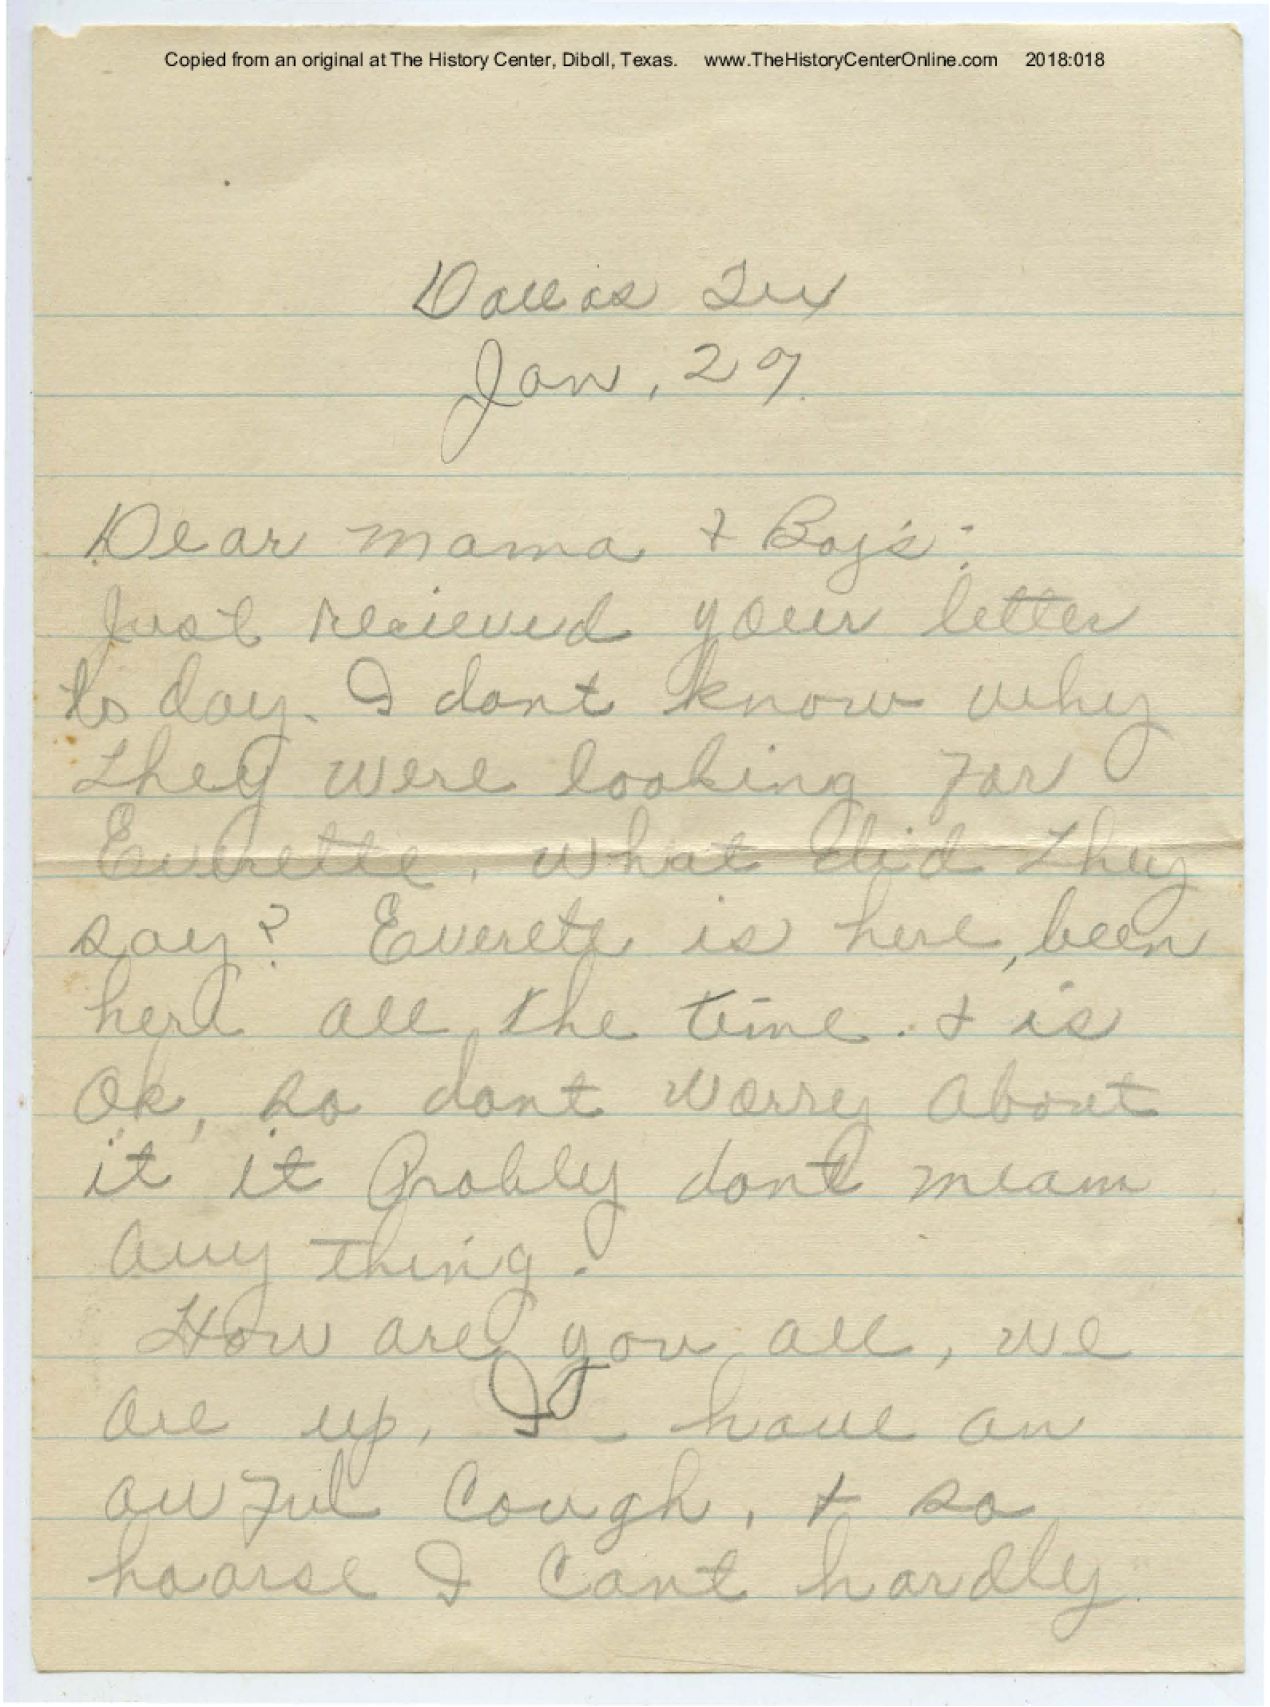 Copied from an original at The History Center, Diboll, Texas. www.TheHistoryCenterOnline.com 2018:018
Dallas Tex
Jan, 29.
Dear Mama & Boy's:
Just recieved your letter
to day. I dont know why
they were looking for
Everette, what did they
say? Everete is here, been
here all the time. & is
Ok, so dont worry about
it it Probly dont mean
any thing.
How are you all, we
are up, I have an
awful Cough, & so
hoarse I Cant hardly